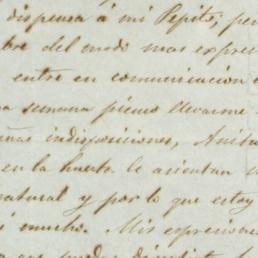 dispensa á mi Pepito; pe
bre del modo mas expres
entre en comunicacion
a semana pienso llevarme
ñas indisposiciones, Anita
en la huerta le asientan
natural y por lo que estoy
i mucho. Mis espresione